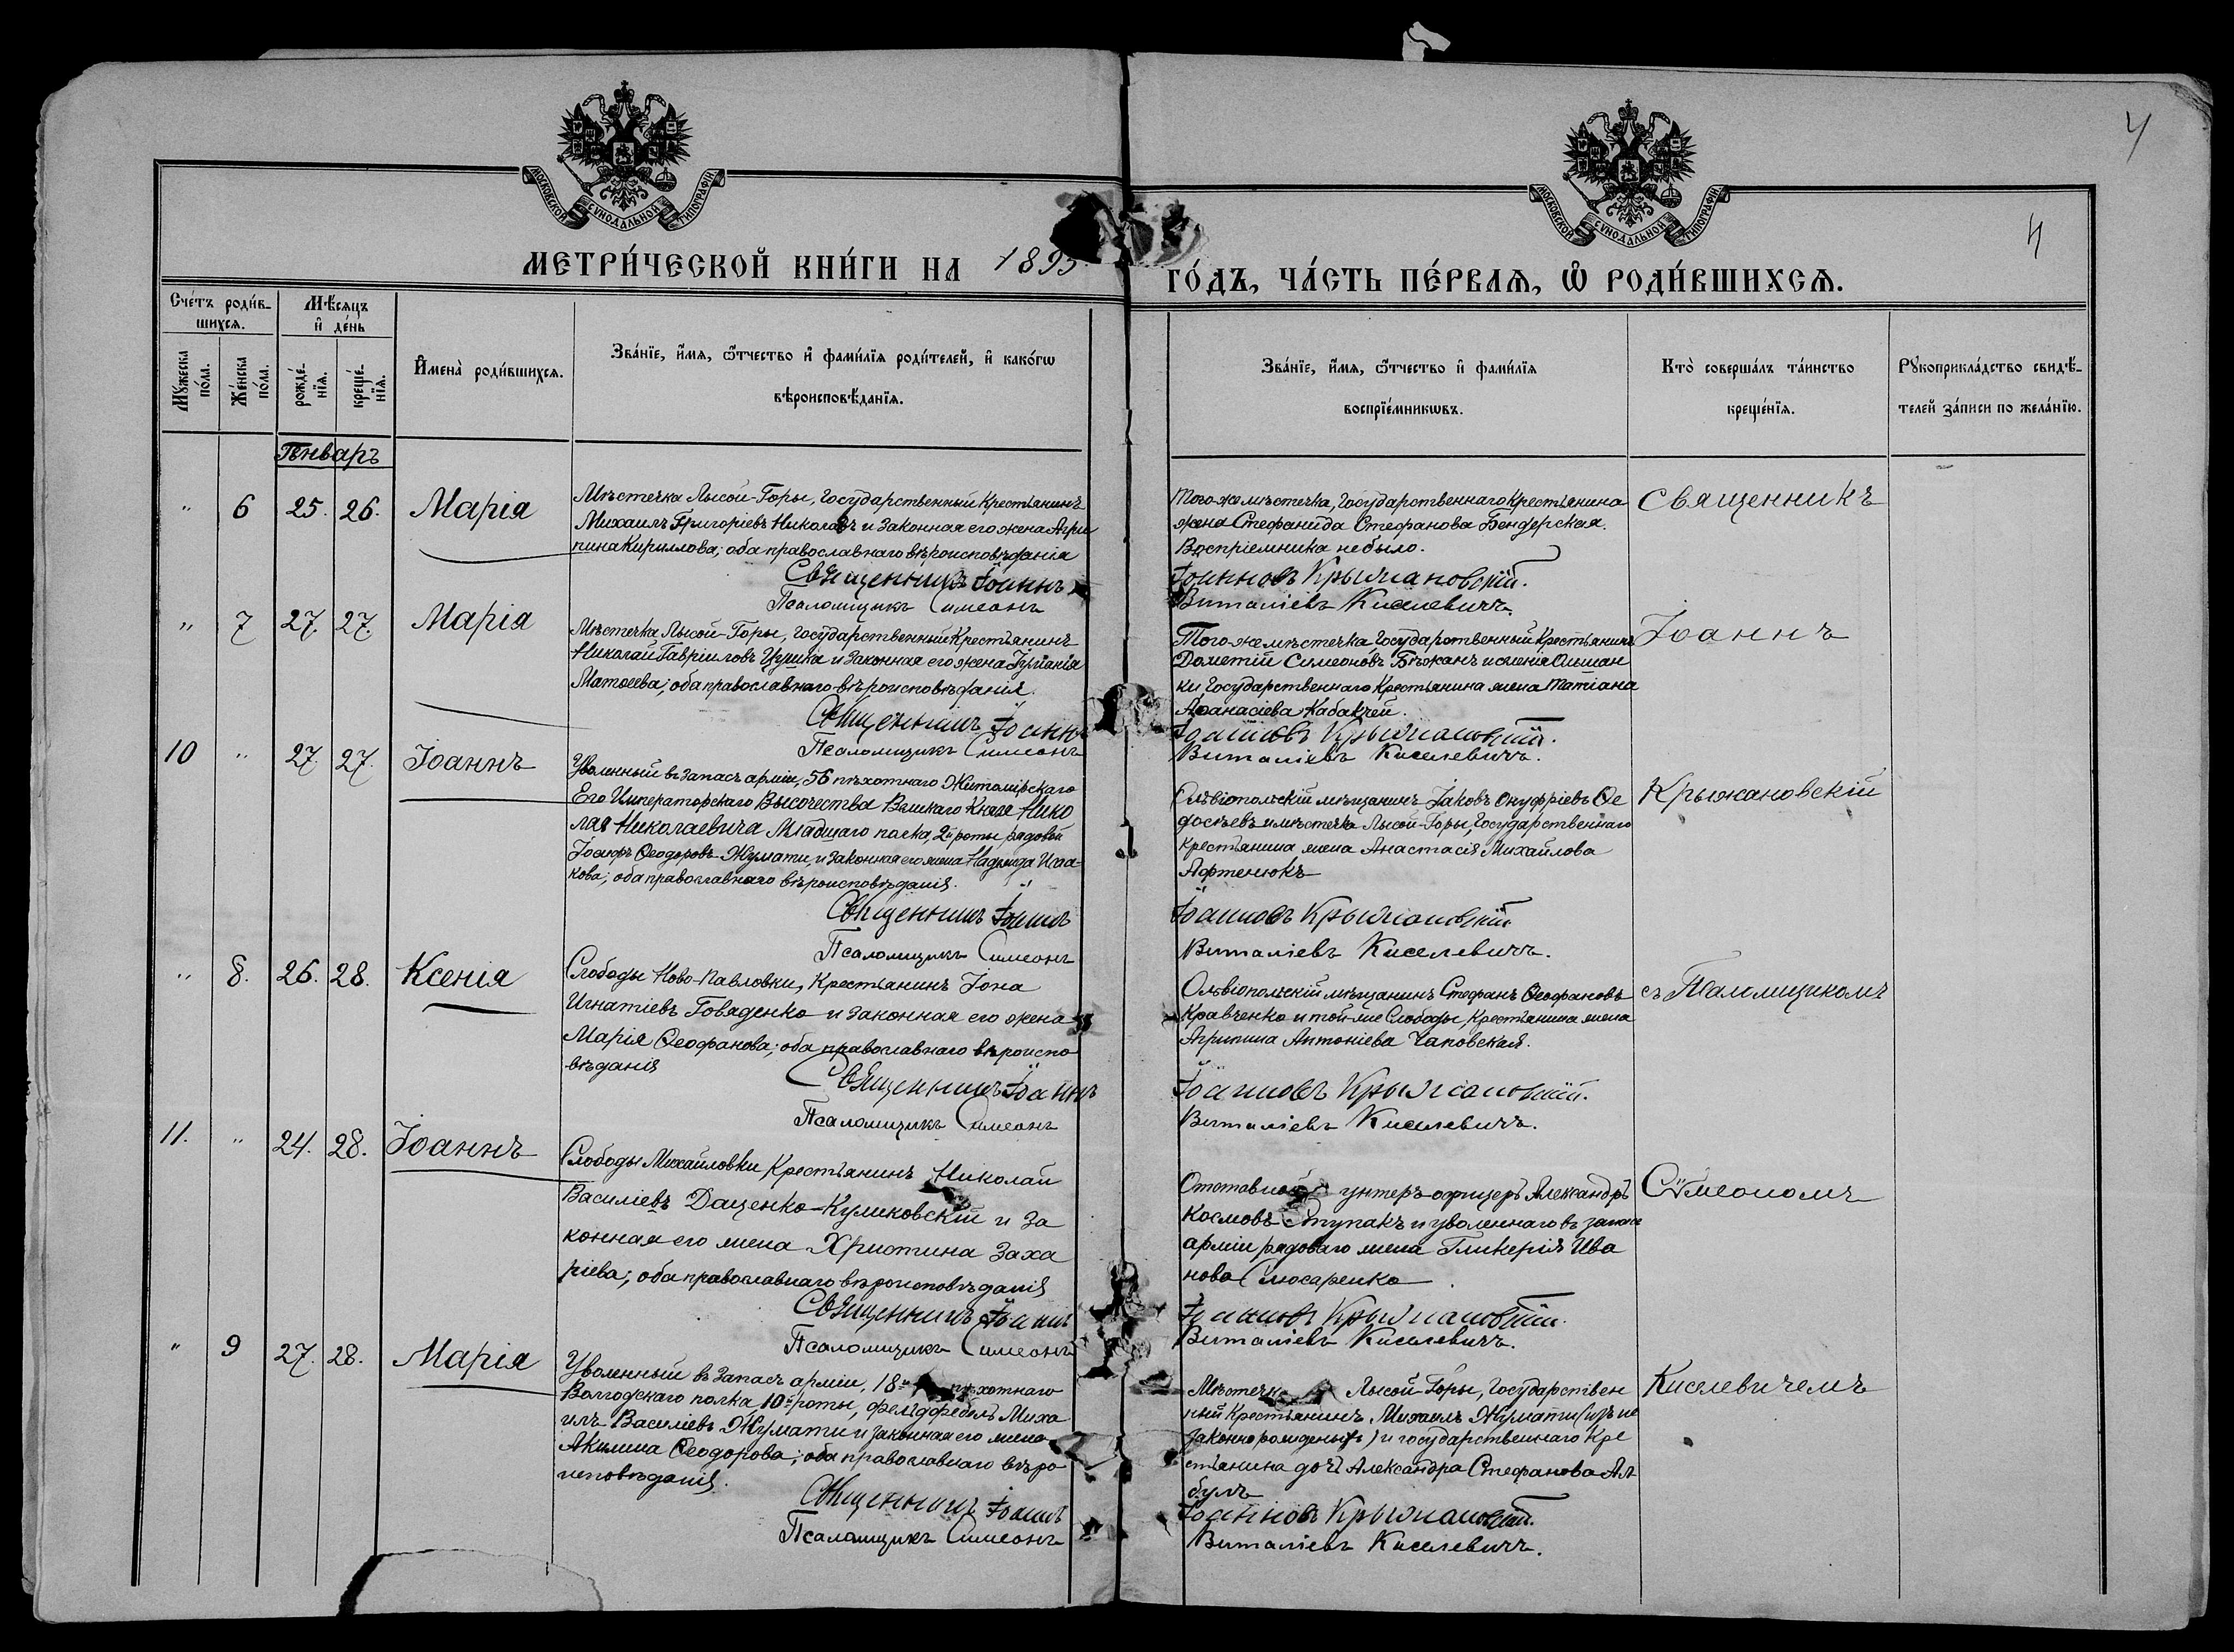 4
4
МОСКОВСКОЙ СѴНОДАЛЬНОЙ ТИПОГРАФІИ
МОСКОВСКОЙ СѴНОДАЛЬНОЙ ТИПОГРАФІИ
МЕТРИ́ЧЕСКОЙ КНИ́ГИ НА 1895
ГО́ДЪ, ЧА́СТЬ ПЕ́РВАѦ, Ѡ҆ РОДИ́ВШИХСѦ.
Сче́тъ роди́в-
шихсѧ.
Мꙋ́жеска по́ла.
Же́нска по́ла.
Мѣ́сѧцъ
и҆ де́нь
рожде́-нїѧ.
креще́-нїѧ.
И҆мена̀ роди́вшихсѧ.
Зва́нїе, и҆́мѧ, ѻ҆́тчество и҆ фами́лїѧ роди́телей, и҆ како́гѡ
вѣроисповѣ́данїѧ.
Зва́нїе, и҆́мѧ, ѻ҆́тчество и҆ фами́лїѧ
воспрїе́мникѡвъ.
Кто̀ соверша́лъ та́инство
креще́нїѧ.
Рꙋкоприкла́дство свидѣ́-
телей за́писи по жела́нїю.
Январь
" 6 25. 26. Марія
Мѣстечка Лысой-Горы, Государственный Крестьянинъ
Михаилъ Григоріевъ Николаевъ и законная его жена Агри
пина Кириллова; оба православнаго вѣроисповѣданія
Священникъ Іоаннъ
Псаломщикъ Симеонъ
Того-же мѣстечка, Государственнаго Крестьянина
жена Стефанида Стефанова Бендерская.
Воспріемника не было.
Іоанновъ Крыжановскій.
Виталіевъ Киселевичъ.
Священникъ
" 7 27. 27. Марія
Мѣстечка Лысой-Горы, Государственный Крестьянинъ
Николай Гавріиловъ Цушка и законная его жена Іуліанія
Матѳеева; оба православнаго вѣроисповѣданія.
Священникъ Іоаннъ
Псаломщикъ Симеонъ
Того-же мѣстечка, Государственный Крестьянинъ
Дометій Симеоновъ Бѣжанъ и селенія Ольшан
ки Государственнаго Крестьянина жена Татіана
Аѳанасіева Кабакчей.
Іоанновъ Крыжановскій.
Виталіевъ Киселевичъ.
Іоаннъ
10 " 27. 27. Іоаннъ
Уволенный въ запасъ арміи, 56 пѣхотнаго Житомірскаго
Его Императорскаго Высочества Великаго Князя Нико
лая Николаевича Младшаго полка, 2й роты, рядовой
Іосифъ Ѳеодоровъ Жумати, и законная его жена Надежда Исаа-
кова; оба православнаго вѣроисповѣданія.
Священникъ Іоаннъ
Псаломщикъ Симеонъ
Ольвіопольскій мѣщанинъ Іаковъ Онуфріевъ Ѳе
досѣевъ и мѣстечка Лысой-Горы, Государственнаго
Крестьянина жена Анастасія Михайлова
Афтенюкъ
Іоанновъ Крыжановскій
Виталіевъ Киселевичъ.
Крыжановскій
" 8. 26. 28. Ксенія
Слободы Ново-Павловки, Крестьянинъ Іона
Игнатіевъ Говяденко и законная его жена
Марія Ѳеофанова; оба православнаго вѣроиспо
вѣданія
Священникъ Іоаннъ
Псаломщикъ Симеонъ
Ольвіопольскій мѣщанинъ Стефанъ Ѳеофановъ
Кравченко и той-же Слободы, Крестьянина жена
Агрипина Антоніева Чаповская.
Іоанновъ Крыжановскій.
Виталіевъ Киселевичъ.
съ Псаломщикомъ
11. " 24. 28. Іоаннъ
Слободы Михайловки, Крестьянинъ Николай
Василіевъ Даценко-Куликовскій и за
конная его жена Христина Заха
ріева; оба православнаго вѣроисповѣданія
Священникъ Іоаннъ
Псаломщикъ Симеонъ
Отставной унтеръ-офицеръ Александръ
Космовъ Ступакъ и уволеннаго въ запасъ
арміи рядоваго жена Гликерія Ива
нова Слюсаренко
Іоанновъ Крыжановскій.
Виталіевъ Киселевичъ.
Сѵмеономъ
" 9 27. 28. Марія
Уволенный въ запасъ арміи, 18го пѣхотнаго
Вологодскаго полка, 10й роты, фельдфебель Миха
илъ Василіевъ Жумати и законная его жена
Акилина Ѳеодорова; оба православнаго вѣро
исповѣданія.
Священникъ Іоаннъ
Псаломщикъ Симеонъ
Мѣстечка Лысой-Горы, Государствен
ный Крестьянинъ Михаилъ Жумати (изъ не
законнорожденныхъ) и государственнаго Кре
стьянина дочь Александра Стефанова Ал
булъ
Іоанновъ Крыжановскій.
Виталіевъ Киселевичъ.
Киселевичемъ